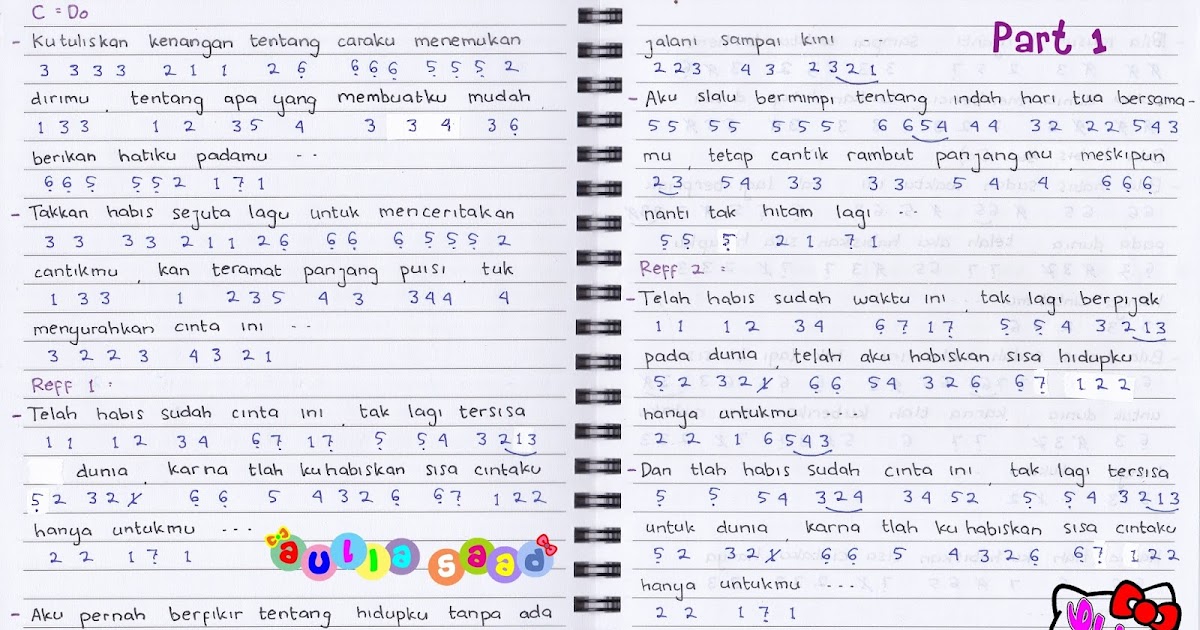 C = Do
- Kutuliskan kenangan tentang caraku menemukan
3 3 3 3 2 1 1 2 6̣ 6̣ 6̣ 6̣ 5̣ 5̣ 5̣ 2
dirimu, tentang apa yang membuatku mudah
1 3 3 1 2 3 5 4 3 3 4 3 6̣
berikan hatiku padamu - -
6̣ 6̣ 5̣ 5̣ 5̣ 2 1 7̣ 1
- Takkan habis sejuta lagu untuk menceritakan
3 3 3 3 2 1 1 2 6̣ 6̣ 6̣ 6̣ 5̣ 5̣ 5̣ 2
cantikmu, kan teramat panjang puisi, tuk
1 3 3 1 2 3 5 4 3 3 4 4 4
menyurahkan cinta ini - -
3 2 2 3 4 3 2 1
Reff 1 :
- Telah habis sudah cinta ini, tak lagi tersisa
1 1 1 2 3 4 6̣ 7̣ 1 7̣ 5̣ 5̣ 4 3 2 1 3
dunia, karna tlah kuhabiskan sisa cintaku
5̣ 2 3 2 1̸ 6̣ 6̣ 5 4 3 2 6̣ 6̣ 7̣ 1 2 2
hanya untukmu - - -
2 2 1 7̣ 1
aulia saad
- Aku pernah berfikir tentang hidupku tanpa ada
Part 1
jalani sampai kini - -
2 2 3 4 3 2 3 2 1
- Aku slalu bermimpi tentang indah hari tua bersama-
5 5 5 5 5 5 5 6 6 5 4 4 4 3 2 2 2 5 4 3
mu, tetap cantik rambut panjangmu, meskipun
2 3 5 4 3 3 3 3 5 4 4 6̣ 6̣ 6̣
nanti tak hitam lagi - -
5̣ 5̣ 5̣ 2 1 7̣ 1
Reff 2 :
- Telah habis sudah waktu ini, tak lagi berpijak
1 1 1 2 3 4 6̣ 7̣ 1 7̣ 5̣ 5̣ 4 3 2 1 3
pada dunia, telah aku habiskan sisa hidupku
5̣ 2 3 2 1̸ 6̣ 6̣ 5 4 3 2 6̣ 6̣ 7̣ 1 2 2
hanya untukmu - - -
2 2 1 6 5 4 3
- Dan tlah habis sudah cinta ini, tak lagi tersisa
5̣ 5̣ 5 4 3 2 4 3 4 5 2 5̣ 5̣ 4 3 2 1 3
untuk dunia, karna tlah kuhabiskan sisa cintaku
5̣ 2 3 2 1̸ 6̣ 6̣ 5 4 3 2 6̣ 6̣ 7̣ 1 2 2
hanya untukmu - - - -
2 2 1 7̣ 1